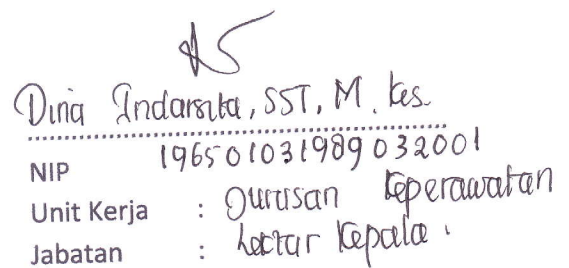 Dina Indarsita, SST, M. Kes.
NIP 196501031989032001
Unit Kerja : Jurusan Keperawatan
Jabatan : Lektor Kepala.